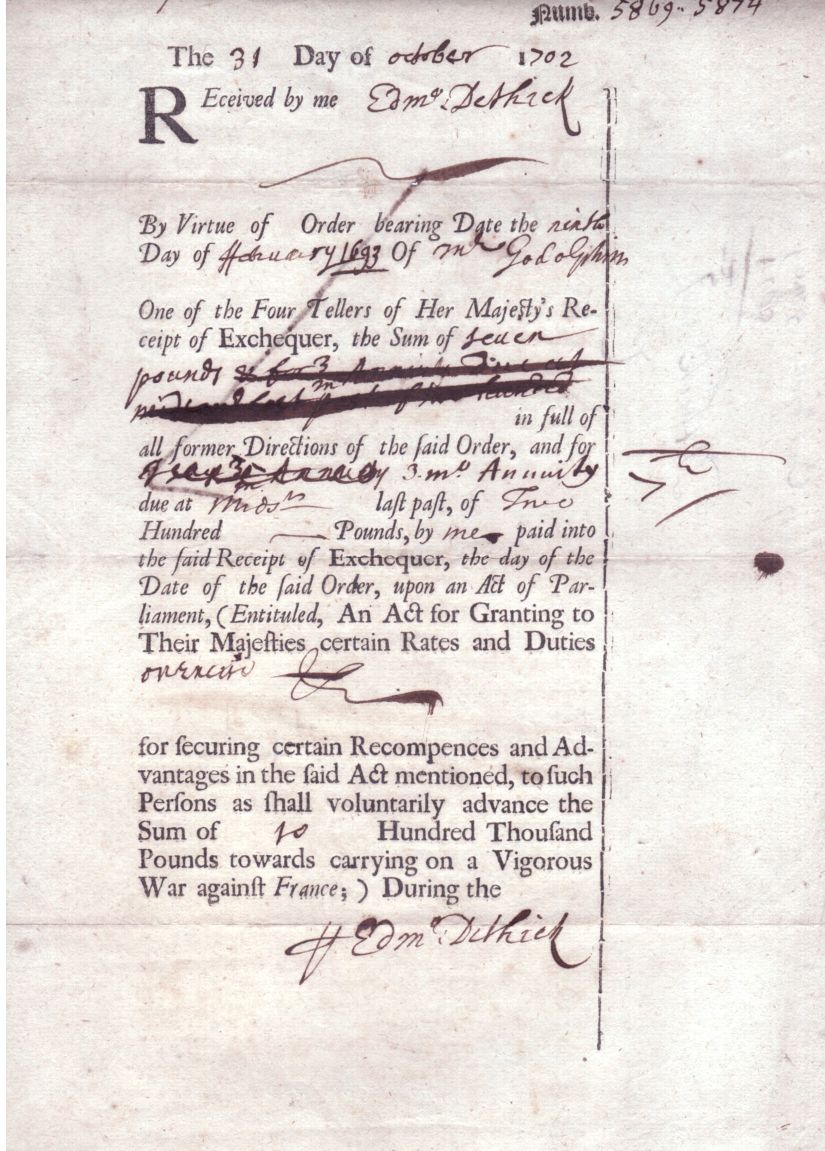 Numb. 5869-5874
The 31 Day of october 1702
REceived by me Edmd: Dethick
By Virtue of Order bearing Date the ninth
Day of ffebruary 1693 Of mr Godolphin
One of the Four Tellers of Her Majeſty's Re-
ceipt of Exchequer, the Sum of seven
pounds & for 3 m Annuity Due at
in full of
all former Directions of the ſaid Order, and for
3 mo Annuity
due at Midsr laſt paſt, of Two
Hundred Pounds, by me paid into
the ſaid Receipt of Exchequer, the day of the
Date of the ſaid Order, upon an Act of Par-
liament, (Entituled, An Act for Granting to
Their Majeſties certain Rates and Duties
for ſecuring certain Recompences and Ad-
vantages in the ſaid Act mentioned, to ſuch
Perſons as ſhall voluntarily advance the
Sum of 10 Hundred Thouſand
Pounds towards carrying on a Vigorous
War againſt France; ) During the
Edmd: Dethick